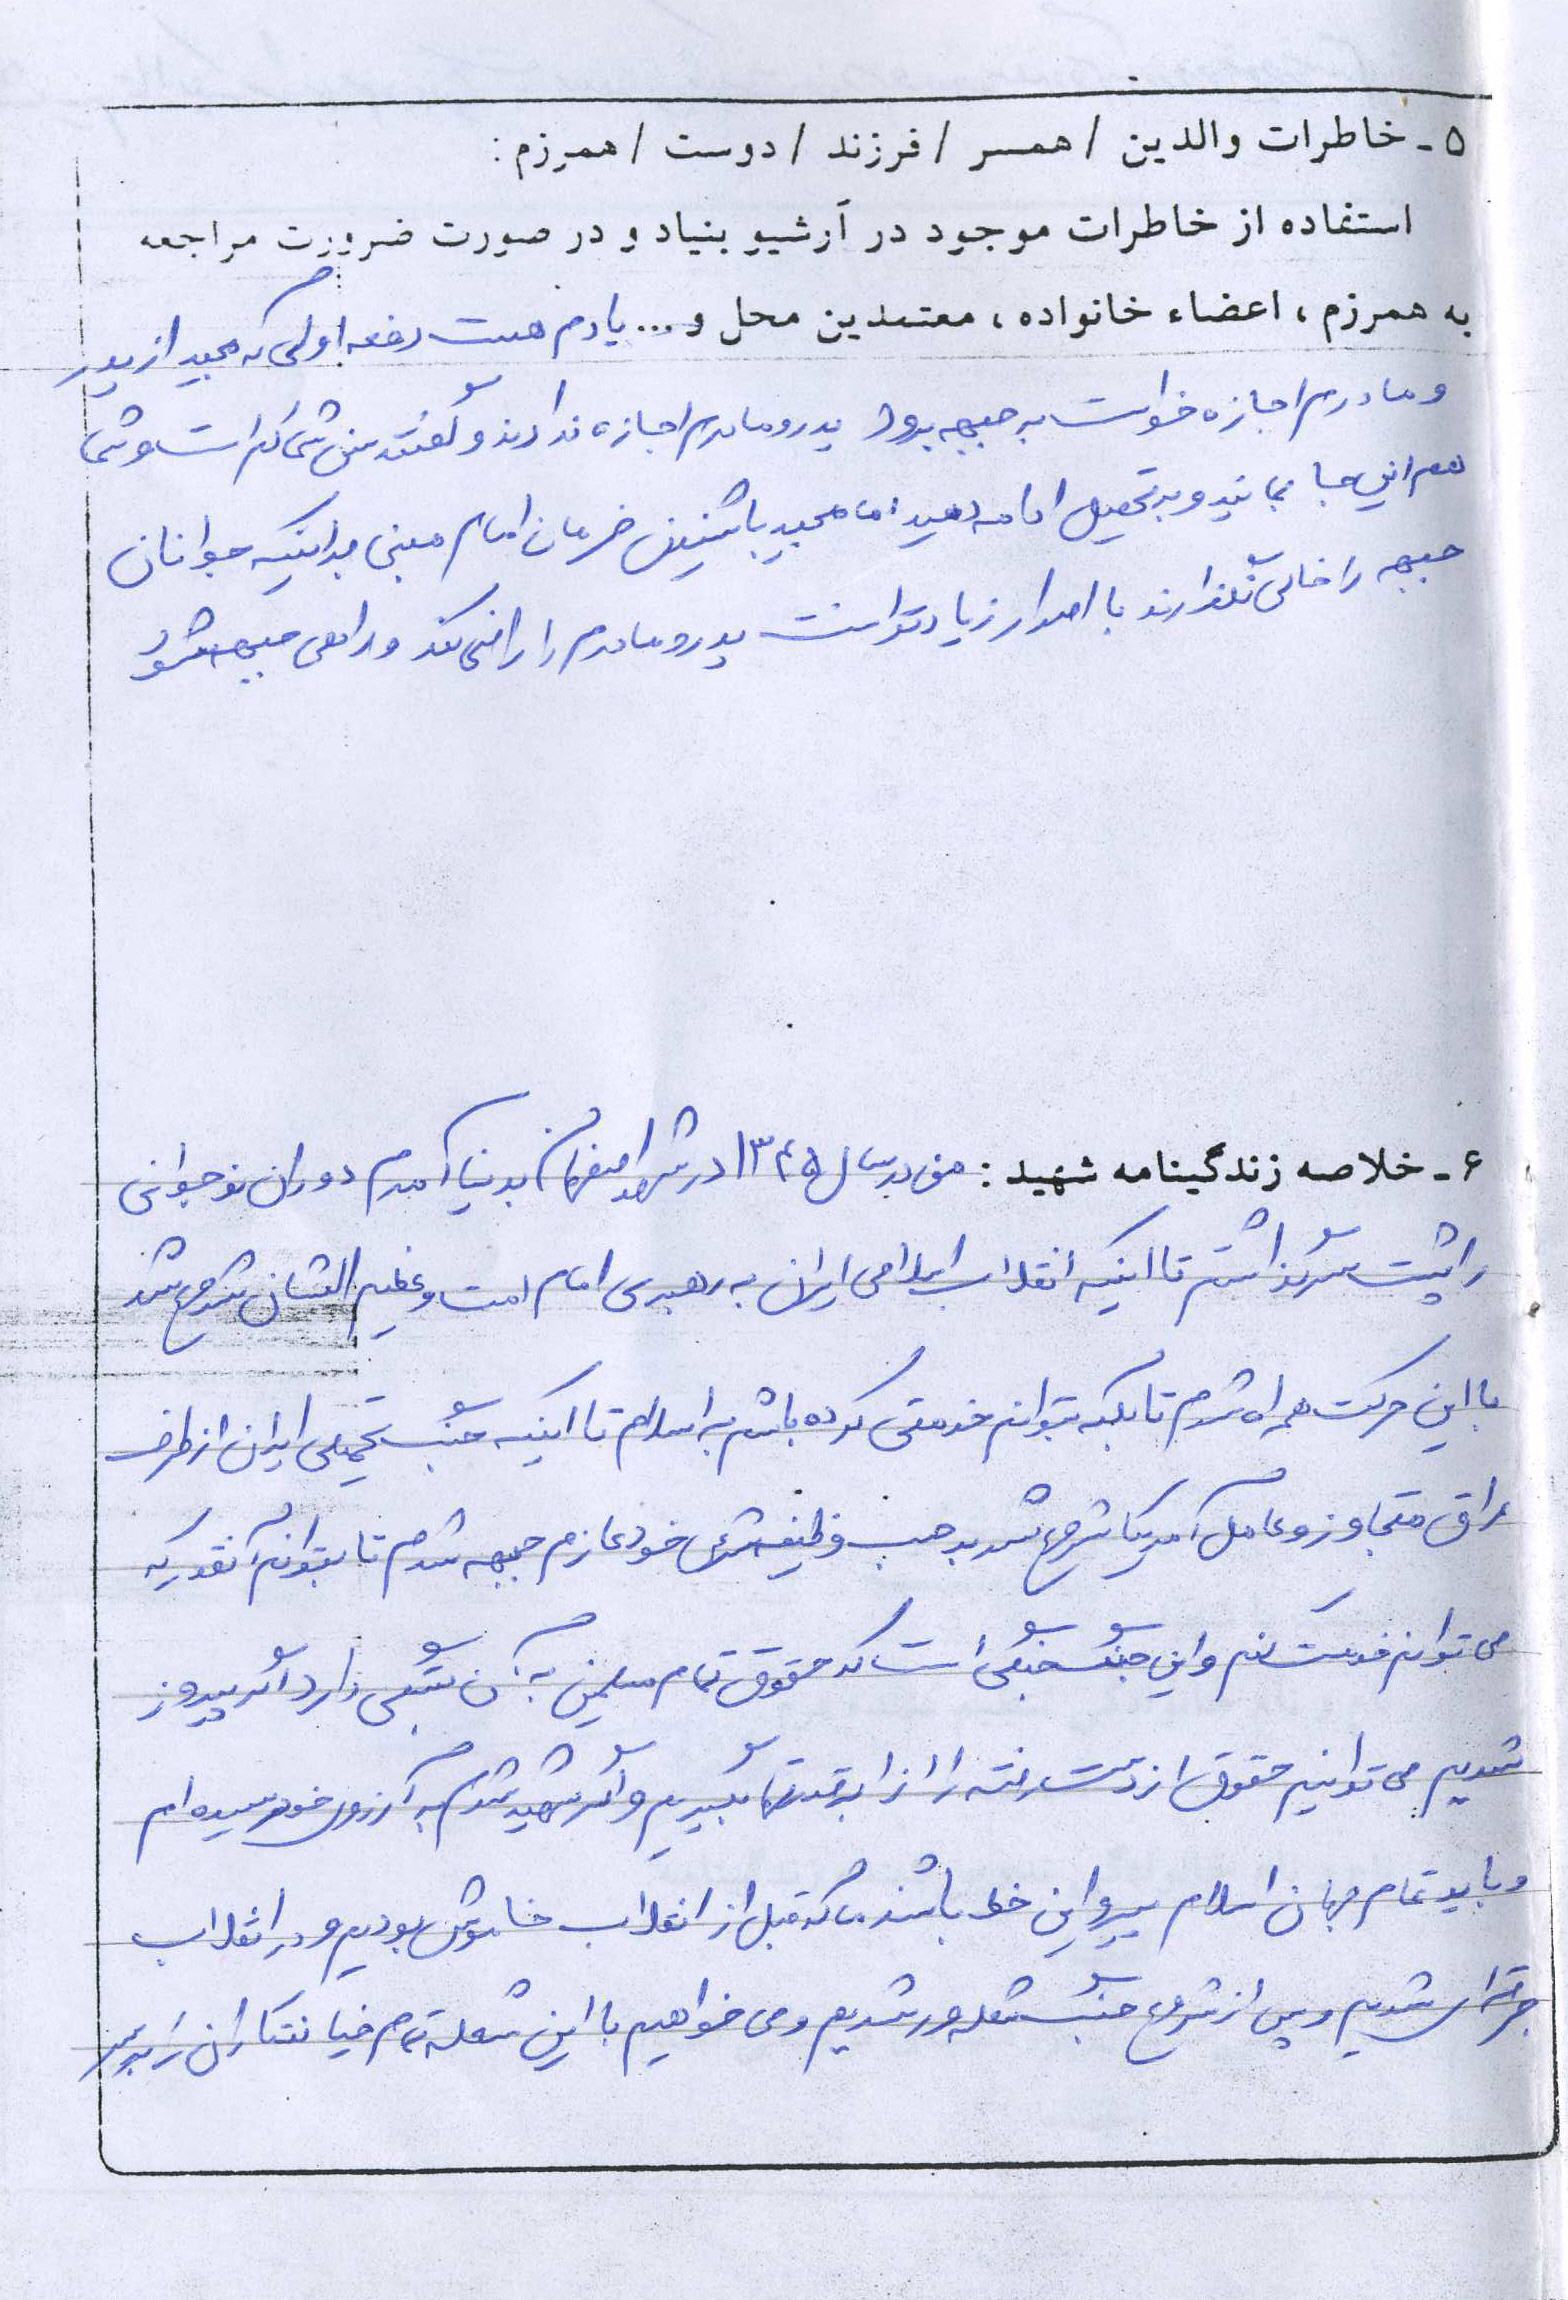 ۵ ـ خاطرات والدین / همسر / فرزند / دوست / همرزم :
استفاده از خاطرات موجود در آرشیو بنیاد و در صورت ضرورت مراجعه
به همرزم ، اعضاء خانواده ، معتمدین محل و ... یادم هست دفعه اولی که مجید از پدر
و مادرم اجازه خواست به جبهه برود پدر و مادرم اجازه ندادند و گفتند سن شما کم است و شما
همین جا بمانید و به تحصیل ادامه دهید اما مجید با شنیدن فرمان امام مبنی بر اینکه جوانان
جبهه را خالی نگذارند با اصرار زیاد توانست پدر و مادرم را راضی کند و راهی جبهه شود
۶ ـ خلاصه زندگینامه شهید : من در سال ۱۳۴۵ در شهر اصفهان بدنیا آمدم دوران نوجوانی
را پشت سر گذاشتم تا اینکه انقلاب اسلامی ایران به رهبری امام امت و عظیم الشان شروع شد
با این حرکت همراه شدم تا بلکه بتوانم خدمتی کرده باشم به اسلام تا اینکه جنگ تحمیلی ایران از طرف
عراق متجاوز و عامل آمریکا شروع شد بر حسب وظیفه شرعی خود عازم جبهه شدم تا بتوانم آنقدر که
می توانم خدمت کنم و این جنگ جنگی است که حقوق تمام مسلمین به آن بستگی دارد اگر پیروز
شدیم می توانیم حقوق از دست رفته را از ابرقدرتها بگیریم و اگر شهید شدم به آرزوی خود رسیده ام
و باید تمام جهان اسلام پیرو این خط باشند ما که قبل از انقلاب خاموش بودیم و در انقلاب
جرقه ای شدیم و پس از شروع جنگ شعله ور شدیم و می خواهیم با این شعله تمام خیانتکاران را